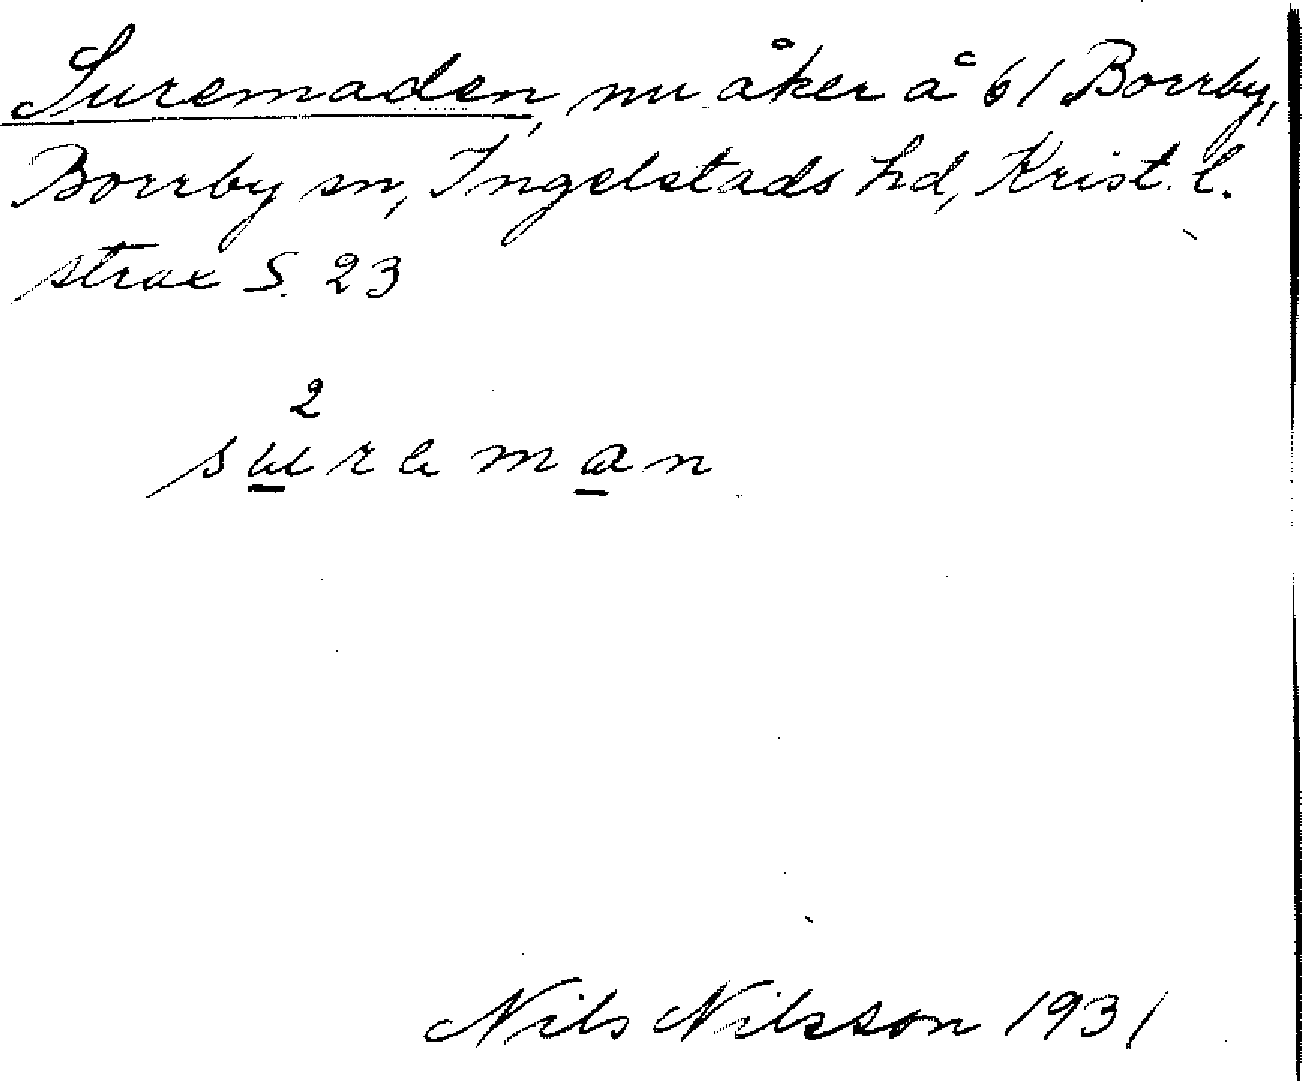 Suremaden, nu åker å 61 Borrby,
Borrby sn, Ingelstads hd, Krist. l.
strax S. 23
2
sureman
Nils Nilsson 1931